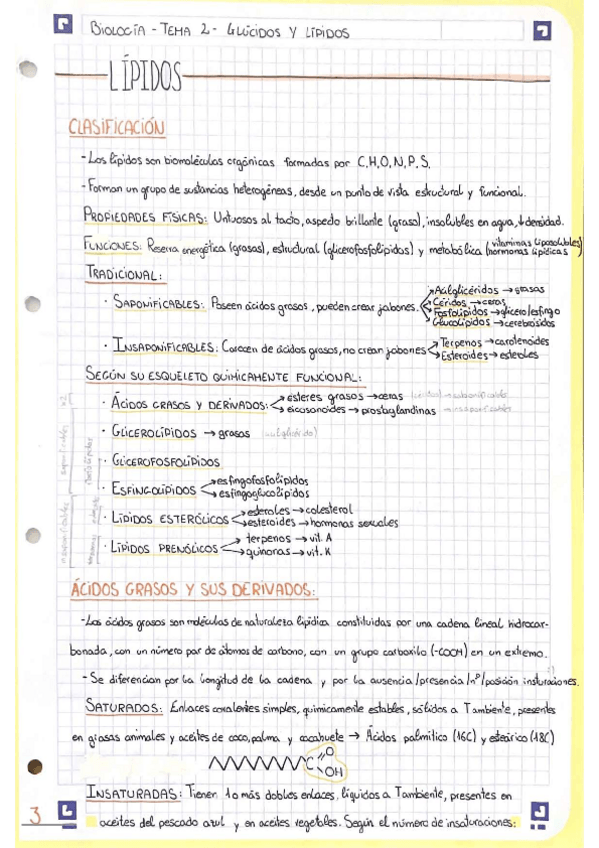 BIOLOGÍA - TEMA 2 - GLÚCIDOS Y LÍPIDOS
LÍPIDOS
CLASIFICACIÓN
- Los lípidos son biomoléculas orgánicas formadas por C,H,O,N,P,S.
- Forman un grupo de sustancias heterogéneas, desde un punto de vista estructural y funcional.
PROPIEDADES FÍSICAS: Untuosos al tacto, aspecto brillante (graso), insolubles en agua, ↓densidad.
FUNCIONES: Reserva energética (grasas), estructural (glicerofosfolípidos) y metabólica (vitaminas liposolubles / hormonas lipídicas)
TRADICIONAL:
· SAPONIFICABLES: Poseen ácidos grasos, pueden crear jabones.
→ Acilglicéridos → grasas
→ Céridos → ceras
→ Fosfolípidos → glicero/esfingo
→ Glucolípidos → cerebrósidos
· INSAPONIFICABLES: Carecen de ácidos grasos, no crean jabones
→ Terpenos → carotenoides
→ Esteroides → esteroles
SEGÚN SU ESQUELETO QUÍMICAMENTE FUNCIONAL:
· ÁCIDOS GRASOS Y DERIVADOS:
→ ésteres grasos → ceras
→ eicosanoides → prostaglandinas → insaponificables
· GLICEROLÍPIDOS → grasas
· GLICEROFOSFOLÍPIDOS
· ESFINGOLÍPIDOS
→ esfingofosfolípidos
→ esfingoglucolípidos
· LÍPIDOS ESTERÓLICOS
→ esteroles → colesterol
→ esteroides → hormonas sexuales
· LÍPIDOS PRENÓLICOS
→ terpenos → vit. A
→ quinonas → vit. K
x2
saponificables
insaponificables
ÁCIDOS GRASOS Y SUS DERIVADOS:
- Los ácidos grasos son moléculas de naturaleza lipídica constituidas por una cadena lineal hidrocar-
bonada, con un número par de átomos de carbono, con un grupo carboxilo (-COOH) en un extremo.
- Se diferencian por la longitud de la cadena y por la ausencia/presencia/nº/posición insturaciones.
SATURADOS: Enlaces covalentes simples, químicamente estables, sólidos a Tambiente, presentes
en grasas animales y aceites de coco, palma y cacahuete → Ácidos palmítico (16C) y esteárico (18C)
C
O
OH
INSATURADAS: Tienen 1 o más dobles enlaces, líquidos a Tambiente, presentes en
aceites del pescado azul y en aceites vegetales. Según el número de insaturaciones:
3